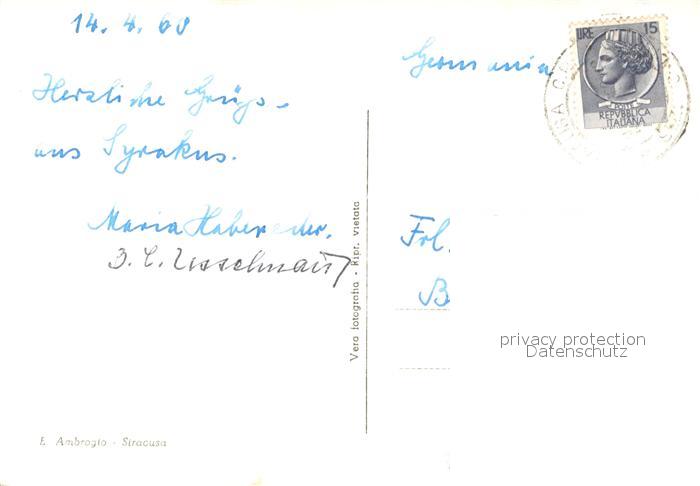 14. 4. 60
Herzliche Grüße
aus Syrakus.
Maria Habereder.
Germania
LIRE 15
POSTE
REPVBBLICA
ITALIANA
Frl.
B
Vera fotografia - Ripr. vietata
privacy protection
Datenschutz
E. Ambrogio - Siracusa